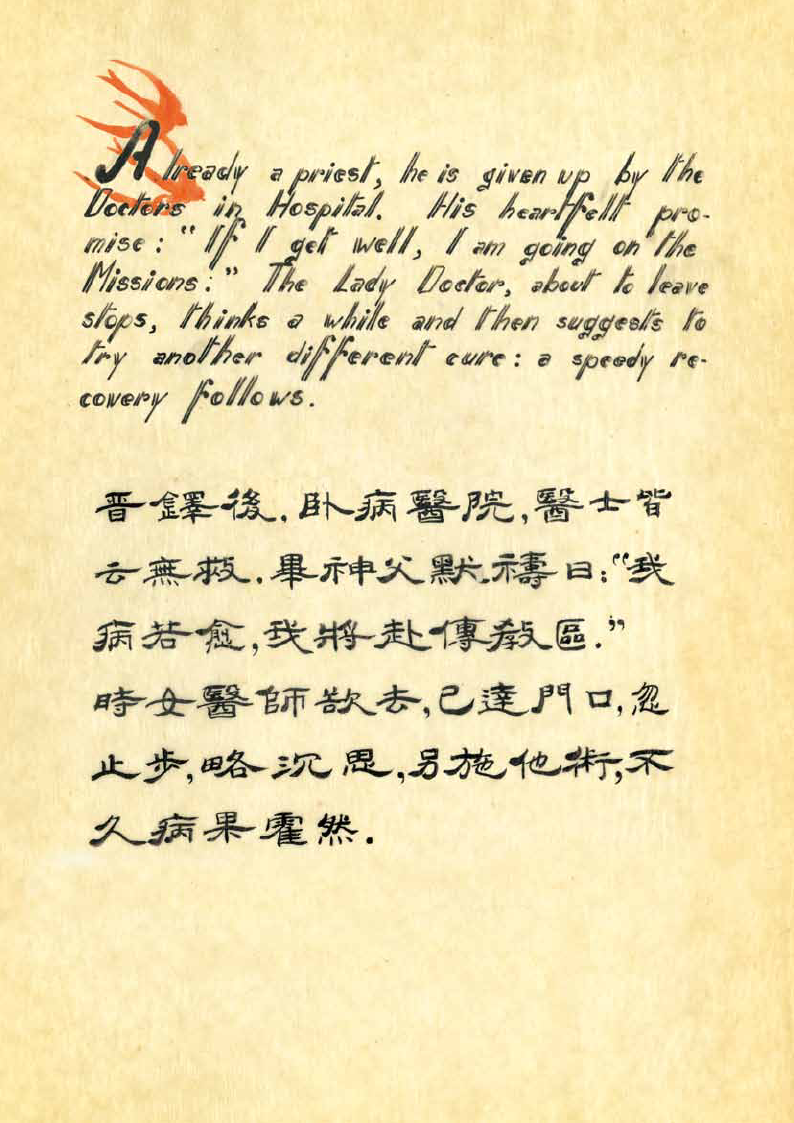 Already a priest, he is given up by the
Doctors in Hospital. His heartfelt pro-
mise: "If I get well, I am going on the
Missions." The Lady Doctor, about to leave
stops, thinks a while and then suggests to
try another different cure: a speedy re-
covery follows.
晋鐸後.卧病醫院,醫士皆
云無救.畢神父默禱曰:"我
病若愈,我將赴傳教區."
時女醫師欲去,已達門口,忽
止步,略沉思,另施他術,不
久病果霍然.